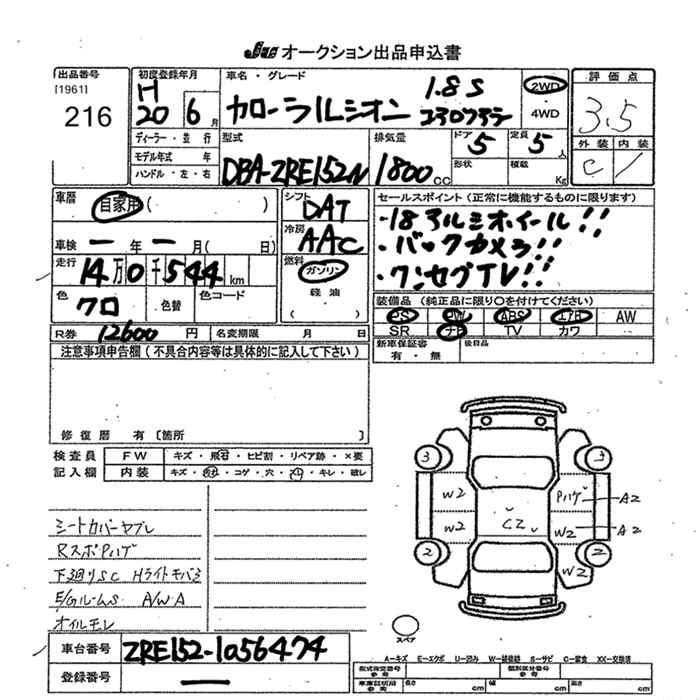 JU オークション出品申込書
出品番号
[1961]
216
初度登録年月
H
20 6月
車名・グレード
カローラルミオン
1.8S
エアロツアラー
2WD
4WD
評価点
3.5
外装 内装
C /
ディーラー・並行
モデル年式 年
ハンドル・左・右
型式
DBA-ZRE152N
排気量
1800 CC
ドア 5
定員 5 人
形状
積載 Kg
車歴
自家用 ( )
シフト
DAT
冷房
AAC
燃料
ガソリン
軽油
( )
車検 ー年ー月( 日)
走行
14万0千544 km
色
クロ
色替
色コード
R券 12600円
名変期限 月 日
セールスポイント (正常に機能するものに限ります)
・18アルミホイール!!
・バックカメラ!!
・ワンセグTV!!
装備品 (純正品に限り〇を付けてください)
PS PW ABS エアB AW
SR ナビ TV カワ
新車保証書
有・無
後日品
注意事項申告欄 (不具合内容等は具体的に記入して下さい)
修復歴 有 [箇所 ]
検査員
記入欄
FW キズ・飛石・ヒビ割・リペア跡・×要
内装 キズ・汚れ・コゲ・穴・スレ・キレ・破レ
シートカバーヤブレ
RスポPハゲ
下廻りSC Hライトモバラ
E/Gルーム S A/W A
オイルモレ
3 3
W2 Pハゲ A2
W2 C2 W2 A2
2 2
W2
スペア
車台番号 ZRE152-1056474
登録番号 ー
A-キズ E-エクボ U-凹み W-補修跡 S-サビ C-腐食 XX-交換済
型式指定番号
参考
類別区分番号
参考
車庫証明用
参考
長さ cm
幅 cm
高さ cm